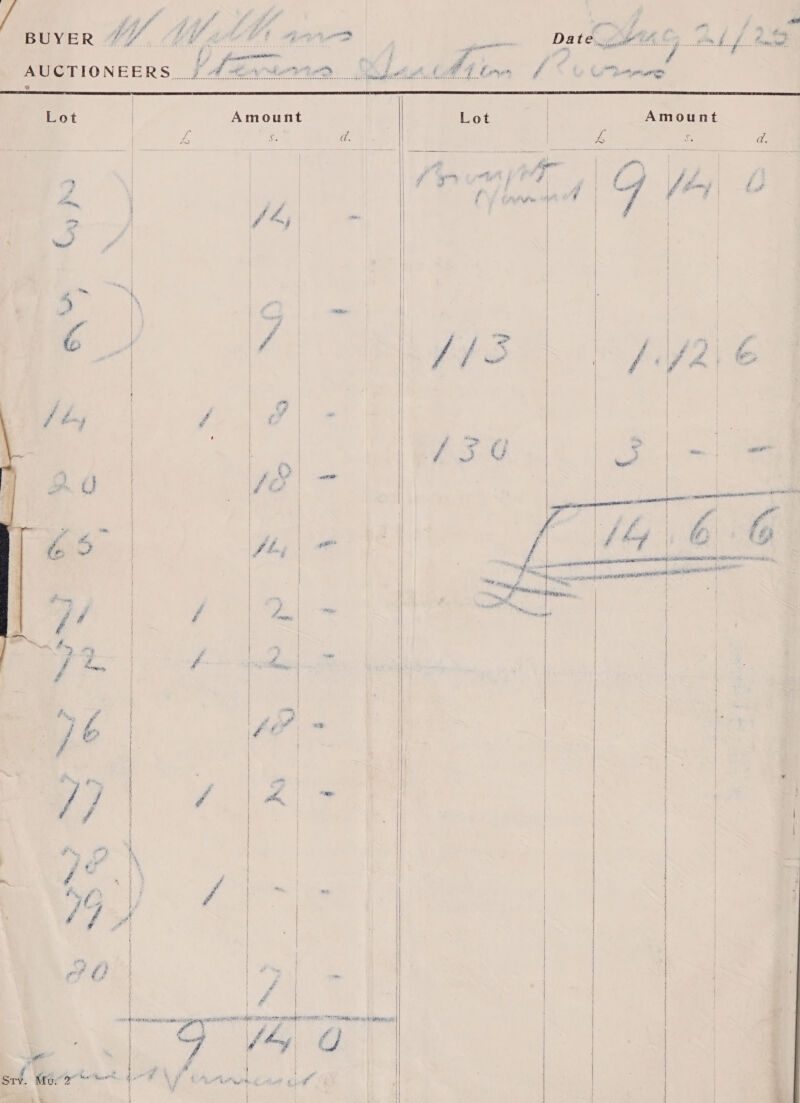 BUYER W. Wilkins Date Aug 21/25
AUCTIONEERS Stevens Auction Rooms
Lot Amount
£ s. d.
2
3 ) 14 -
5
6 ) 9 -
14 1 8 -
20 18 -
65 14 -
71 1 2 -
72 1 2 -
76 18 -
77 1 2 -
78
79 ) 1 - -
80 7 -
9 14 0
Carried Forward
Sty. Mu. 2
Lot Amount
£ s. d.
Brought
Forward 9 14 0
113 1.12.6
130 3 - -
£ 14.6.6